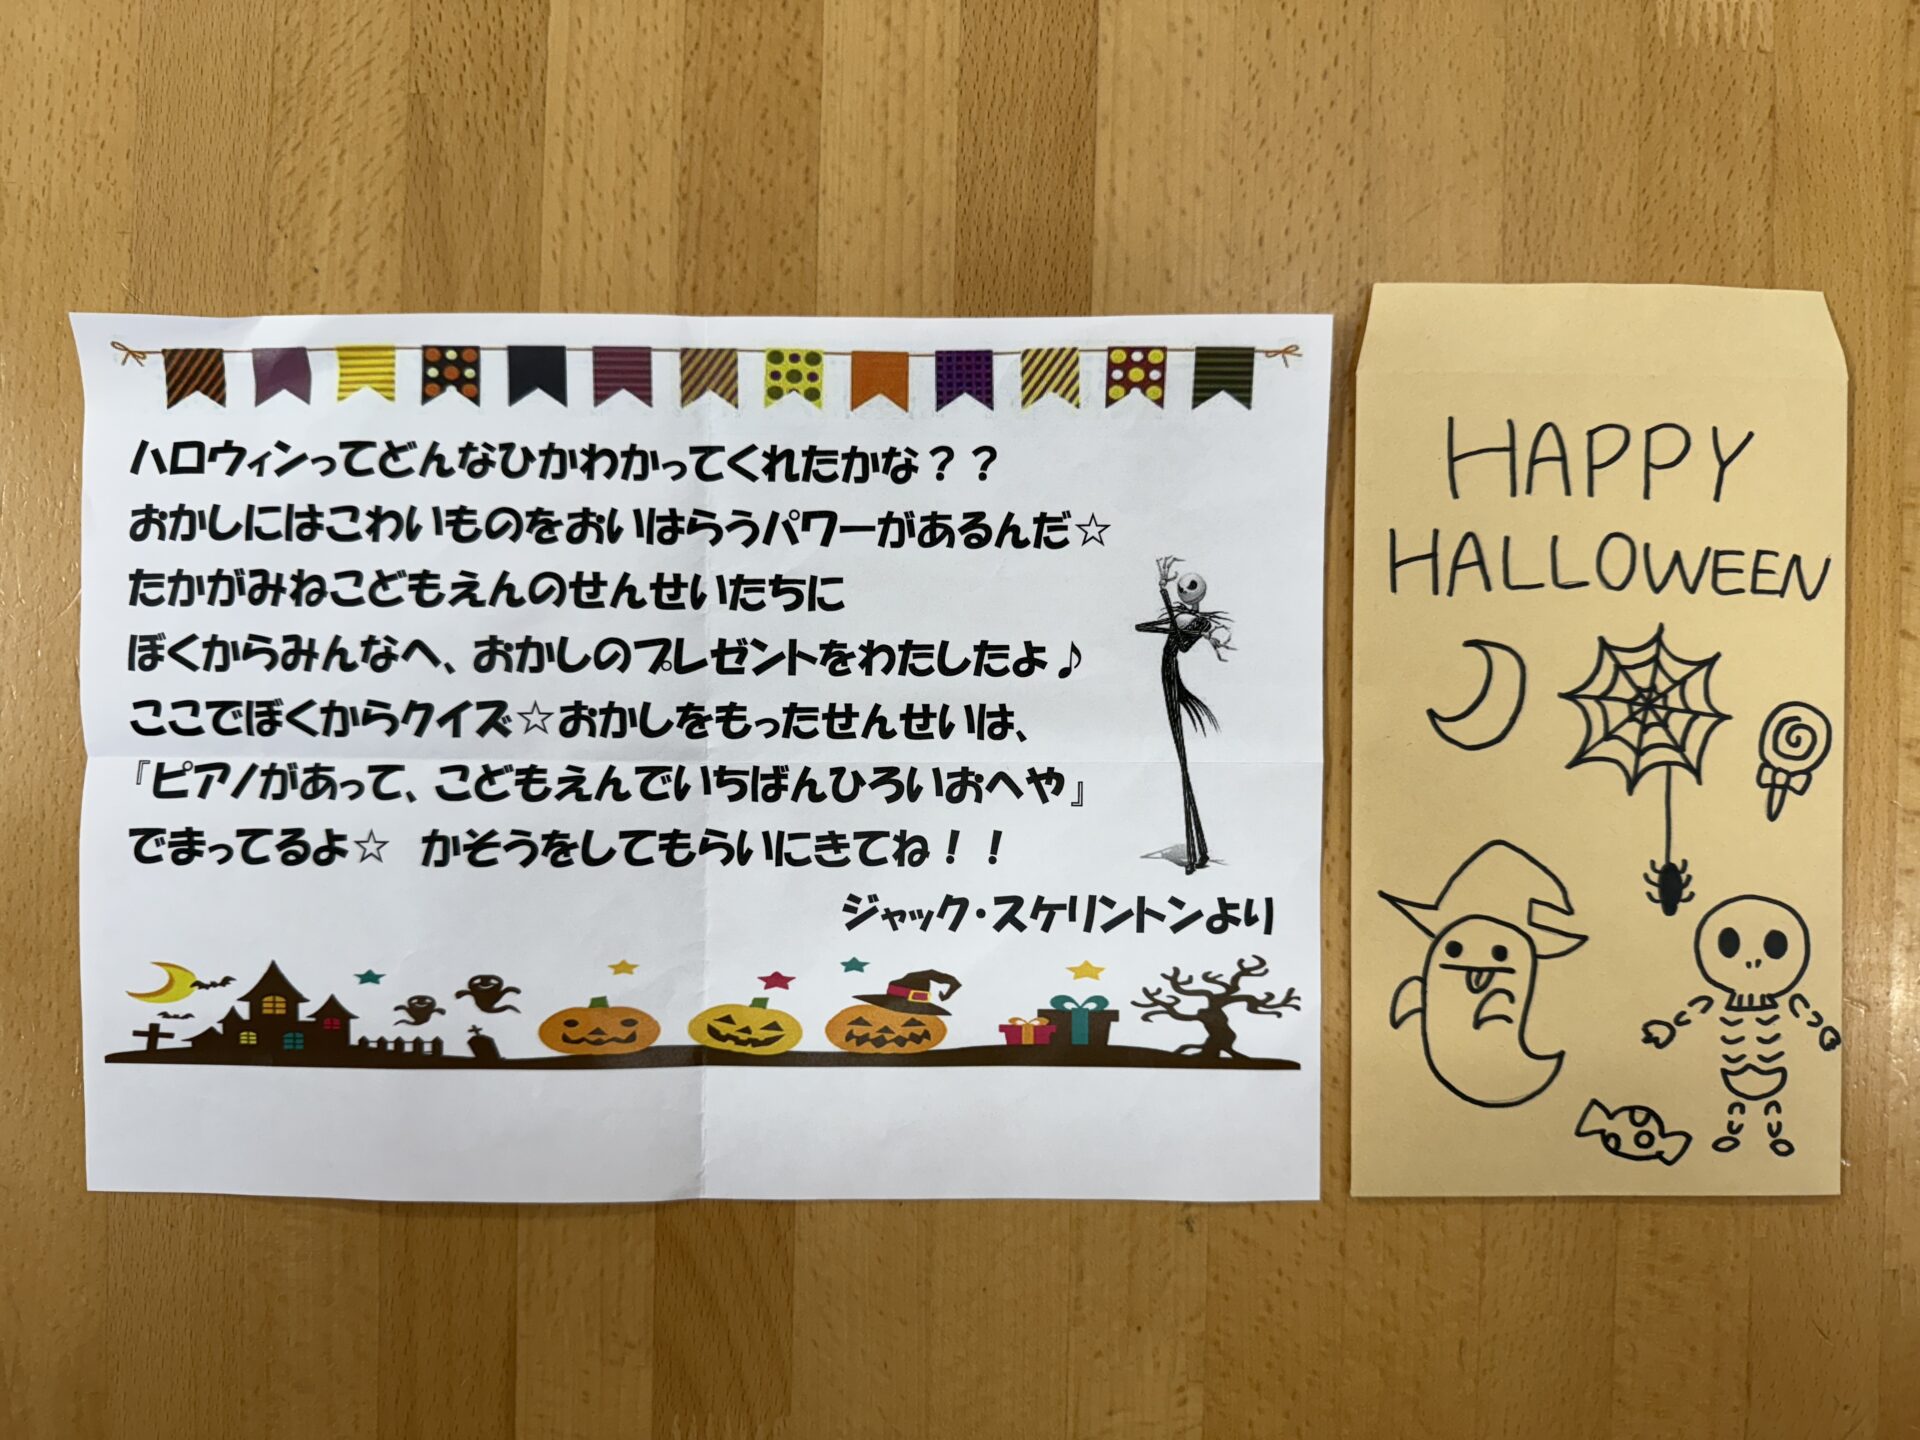 ハロウィンってどんなひかわかってくれたかな？？
おかしにはこわいものをおいはらうパワーがあるんだ☆
たかがみねこどもえんのせんせいたちに
ぼくからみんなへ、おかしのプレゼントをわたしたよ♪
ここでぼくからクイズ☆おかしをもったせんせいは、
『ピアノがあって、こどもえんでいちばんひろいおへや』
でまってるよ☆　かそうをしてもらいにきてね！！
ジャック・スケリントンより
HAPPY
HALLOWEEN